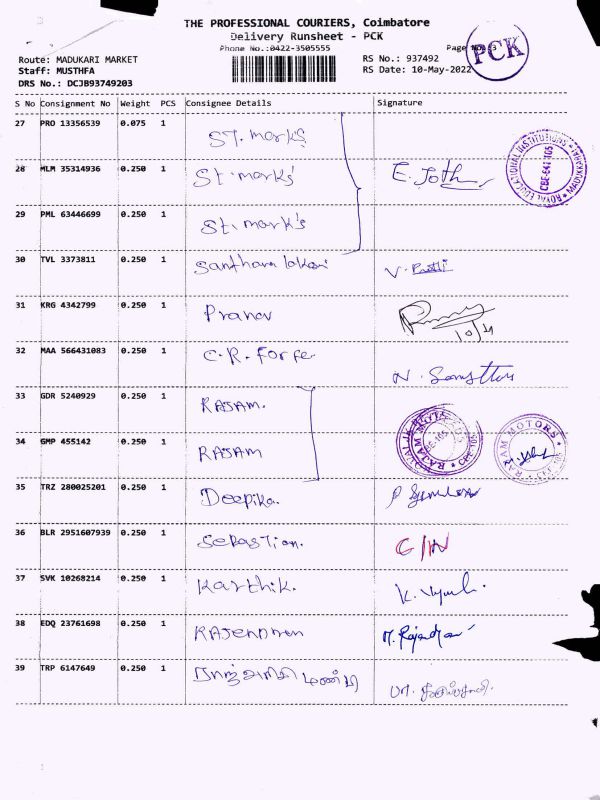 THE PROFESSIONAL COURIERS, Coimbatore
Delivery Runsheet - PCK
Phone No.:0422-3505555
Page No.:3
PCK
Route: MADUKARI MARKET
Staff: MUSTHFA
DRS No.: DCJB93749203
RS No.: 937492
RS Date: 10-May-2022
S No Consignment No Weight PCS Consignee Details Signature
27 PRO 13356539 0.075 1 ST. mark's
28 MLM 35314936 0.250 1 St. mark's E. Joth
ROYAL EDUCATIONAL INSTITUTIONS CBE-641 105
29 PML 63446699 0.250 1 St. mark's
30 TVL 3373811 0.250 1 V.
31 KRG 4342799 0.250 1 Pranav
32 MAA 566431083 0.250 1 C.R. Forge N.
33 GDR 5240929 0.250 1 RAJAM.
34 GMP 455142 0.250 1 RAJAM
RAJAM MOTORS
35 TRZ 280025201 0.250 1 Deepika.
36 BLR 2951607939 0.250 1 Sebastian.
37 SVK 10268214 0.250 1 Karthik. K.
38 EDQ 23761698 0.250 1 RAJENDREN M. Rajendran
39 TRP 6147649 0.250 1